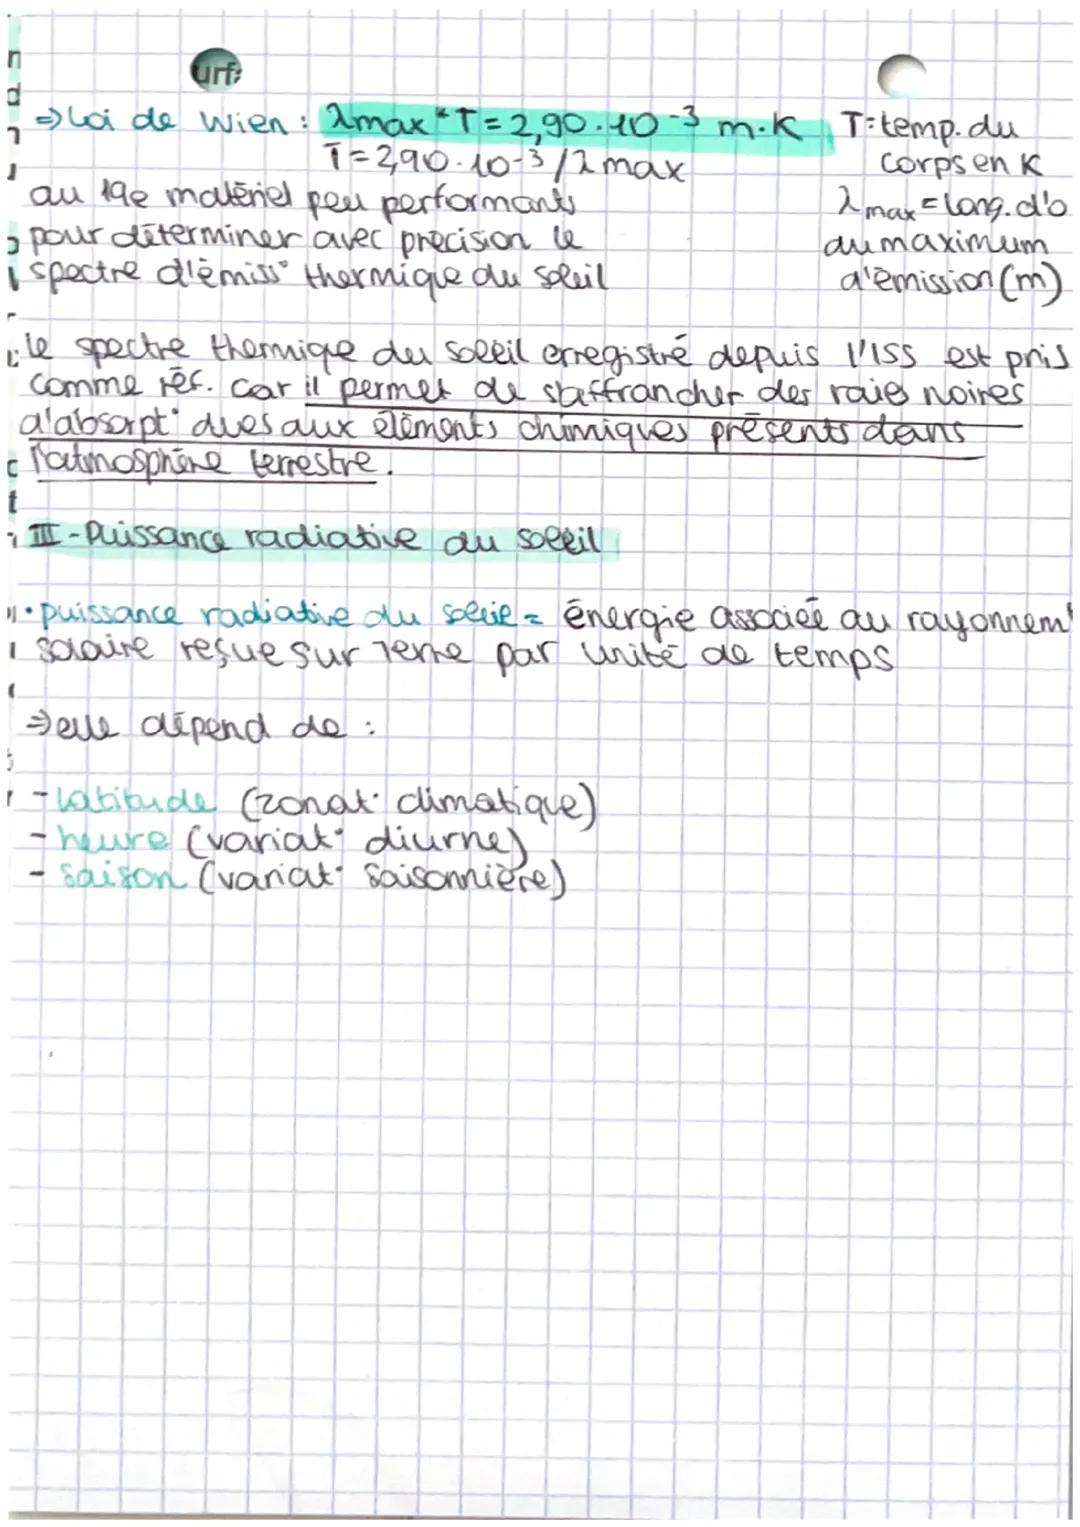 urf:
⇒ Loi de Wien : λmax * T = 2,90 . 10⁻³ m.K T = temp. du
T = 2,90 . 10⁻³ / λmax corps en K
au 19e matériel peu performants λmax = long. d'o
pour déterminer avec précision le du maximum
spectre d'émiss° thermique du soleil d'émission (m)
le spectre thermique du soleil erregistré depuis l'ISS est pris
comme réf. car il permet de s'affrancher des raies noires
d'absorpt° dues aux éléments chimiques présents dans
l'atmosphère terrestre.
III - Puissance radiative du soleil
• puissance radiative du soleil = énergie associée au rayonnem
solaire reçue sur Terre par unité de temps
⇒ elle dépend de :
- latitude (zonat° climatique)
- heure (variat° diurne)
- saison (variat° saisonnière)